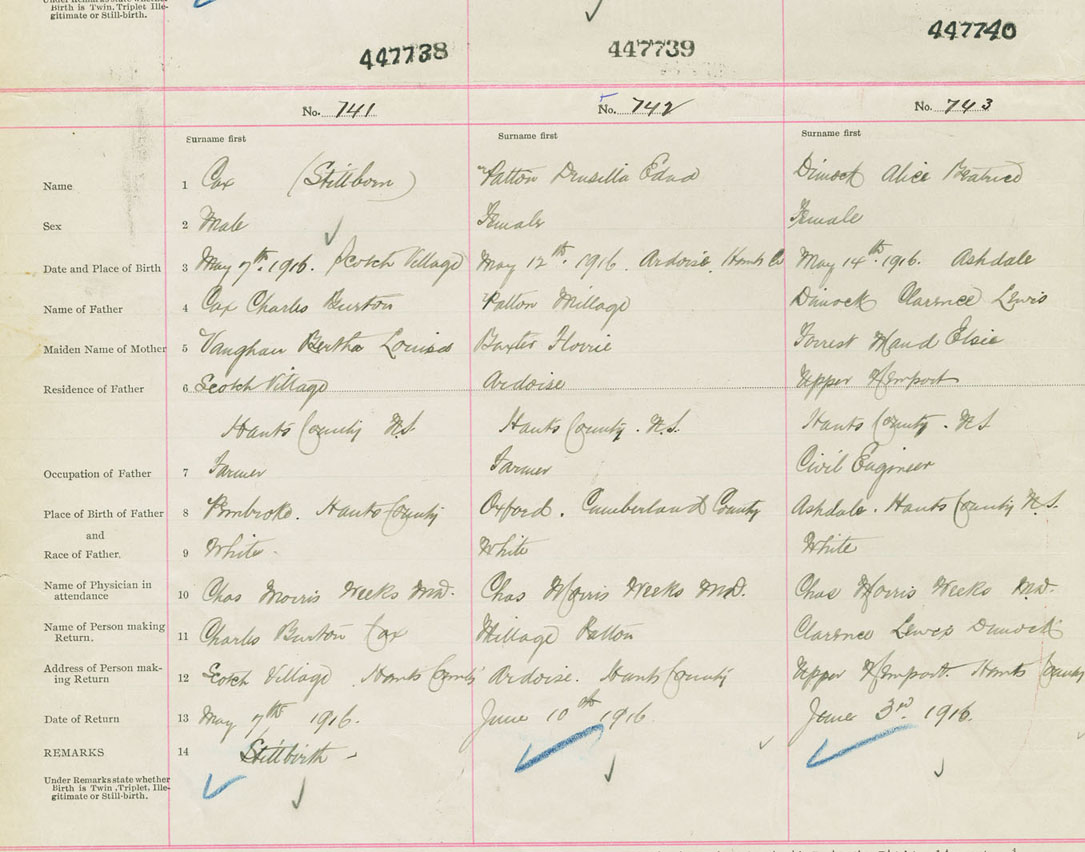 Under Remarks state whether
Birth is Twin, Triplet, Ille-
gitimate or Still-birth.
447738 447739 447740
No. 741 No. 742 No. 743
Surname first Surname first Surname first
Name 1 Cox (Stillborn) Patton Drusilla Edna Dimock Alice Beatrice
Sex 2 Male Female Female
Date and Place of Birth 3 May 7th. 1916. Scotch Village May 12th. 1916. Ardoise, Hants Co May 14th. 1916. Ashdale
Name of Father 4 Cox Charles Burton Patton Millage Dimock Clarence Lewis
Maiden Name of Mother 5 Vaughan Bertha Louisa Baxter Florrie Forrest Maud Elsie
Residence of Father 6 Scotch Village Ardoise Upper Newport
Hants County N.S Hants County. N.S. Hants County. N.S
Occupation of Father 7 Farmer Farmer Civil Engineer
Place of Birth of Father 8 Pembroke. Hants County Oxford. Cumberland County Ashdale. Hants County N.S.
and
Race of Father. 9 White White White
Name of Physician in
attendance 10 Chas Morris Weeks M.D. Chas Morris Weeks M.D. Chas Morris Weeks M.D.
Name of Person making
Return. 11 Charles Burton Cox Millage Patton Clarence Lewis Dimock
Address of Person mak-
ing Return 12 Scotch Village. Hants County Ardoise. Hants County Upper Newport. Hants County
Date of Return 13 May 7th 1916. June 10th 1916. June 3rd. 1916.
REMARKS 14 Stillbirth -
Under Remarks state whether
Birth is Twin, Triplet, Ille-
gitimate or Still-birth.